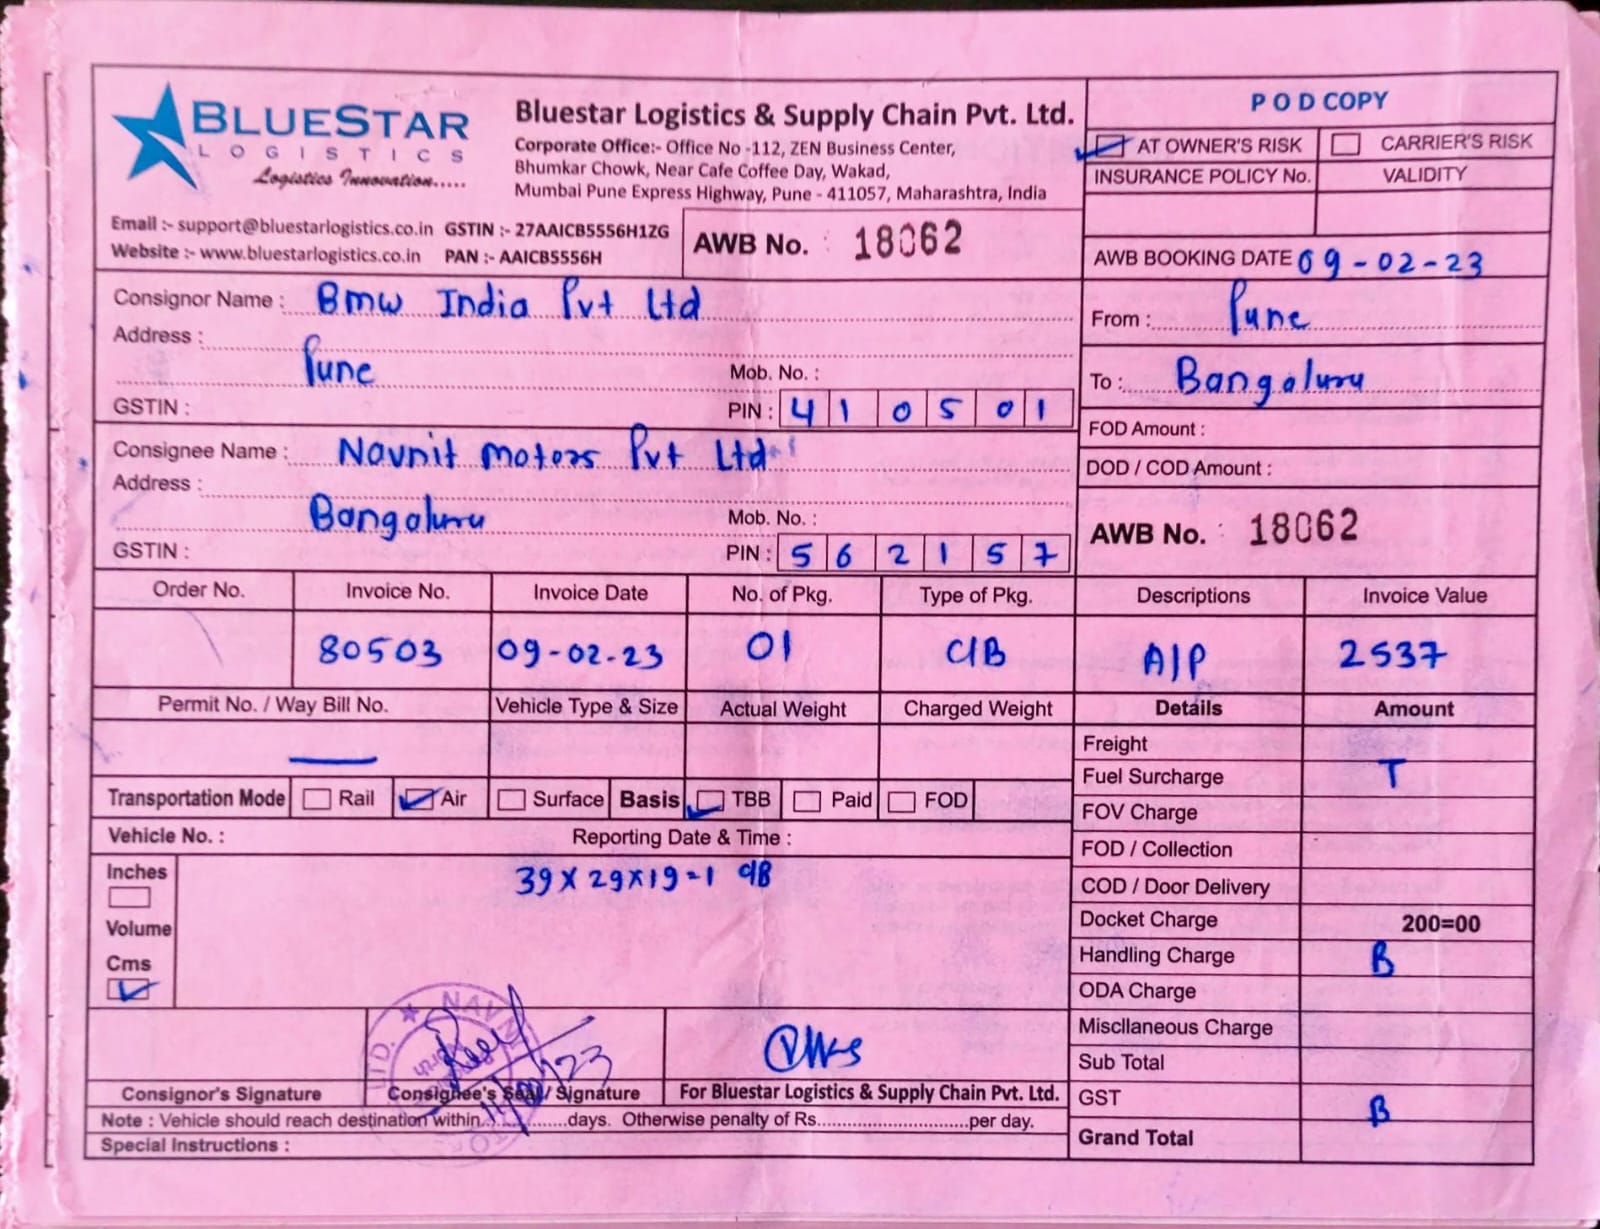 BLUESTAR
LOGISTICS
Logistics Innovation.....
Bluestar Logistics & Supply Chain Pvt. Ltd.
Corporate Office:- Office No -112, ZEN Business Center,
Bhumkar Chowk, Near Cafe Coffee Day, Wakad,
Mumbai Pune Express Highway, Pune - 411057, Maharashtra, India
Email :- support@bluestarlogistics.co.in GSTIN :- 27AAICB5556H1ZG
Website :- www.bluestarlogistics.co.in PAN :- AAICB5556H
AWB No. : 18062
POD COPY
AT OWNER'S RISK CARRIER'S RISK
INSURANCE POLICY No. VALIDITY
AWB BOOKING DATE 09-02-23
Consignor Name : Bmw India Pvt Ltd
Address :
Pune
Mob. No. :
GSTIN :
PIN : 410501
From : Pune
To : Bangaluru
FOD Amount :
DOD / COD Amount :
AWB No. : 18062
Consignee Name : Navnit motors Pvt Ltd
Address :
Bangaluru
Mob. No. :
GSTIN :
PIN : 562157
Order No. Invoice No. Invoice Date No. of Pkg. Type of Pkg. Descriptions Invoice Value
80503 09-02-23 01 C/B A/P 2537
Permit No. / Way Bill No. Vehicle Type & Size Actual Weight Charged Weight Details Amount
Freight
Fuel Surcharge T
FOV Charge
FOD / Collection
COD / Door Delivery
Docket Charge 200=00
Handling Charge B
ODA Charge
Miscllaneous Charge
Sub Total
GST B
Grand Total
Transportation Mode Rail Air Surface Basis TBB Paid FOD
Vehicle No. : Reporting Date & Time :
Inches
39 x 29 x 19 = 1 C/B
Volume
Cms
Consignor's Signature Consignee's Seal / Signature For Bluestar Logistics & Supply Chain Pvt. Ltd.
Note : Vehicle should reach destination within.............days. Otherwise penalty of Rs.............................per day.
Special Instructions :